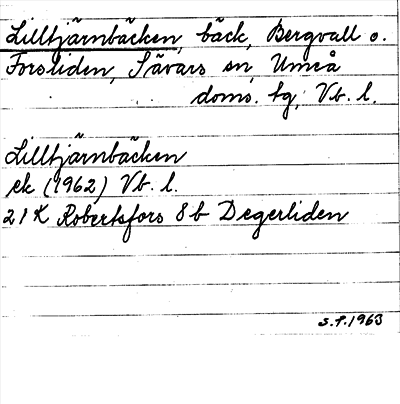 Lilltjärnbäcken, bäck, Bergvall o.
Forsliden, Sävars sn, Umeå
doms. tg, Vb. l.
Lilltjärnbäcken
ek (1962) Vb. l.
21 K Robertsfors 8 b Degerliden
S.P. 1963